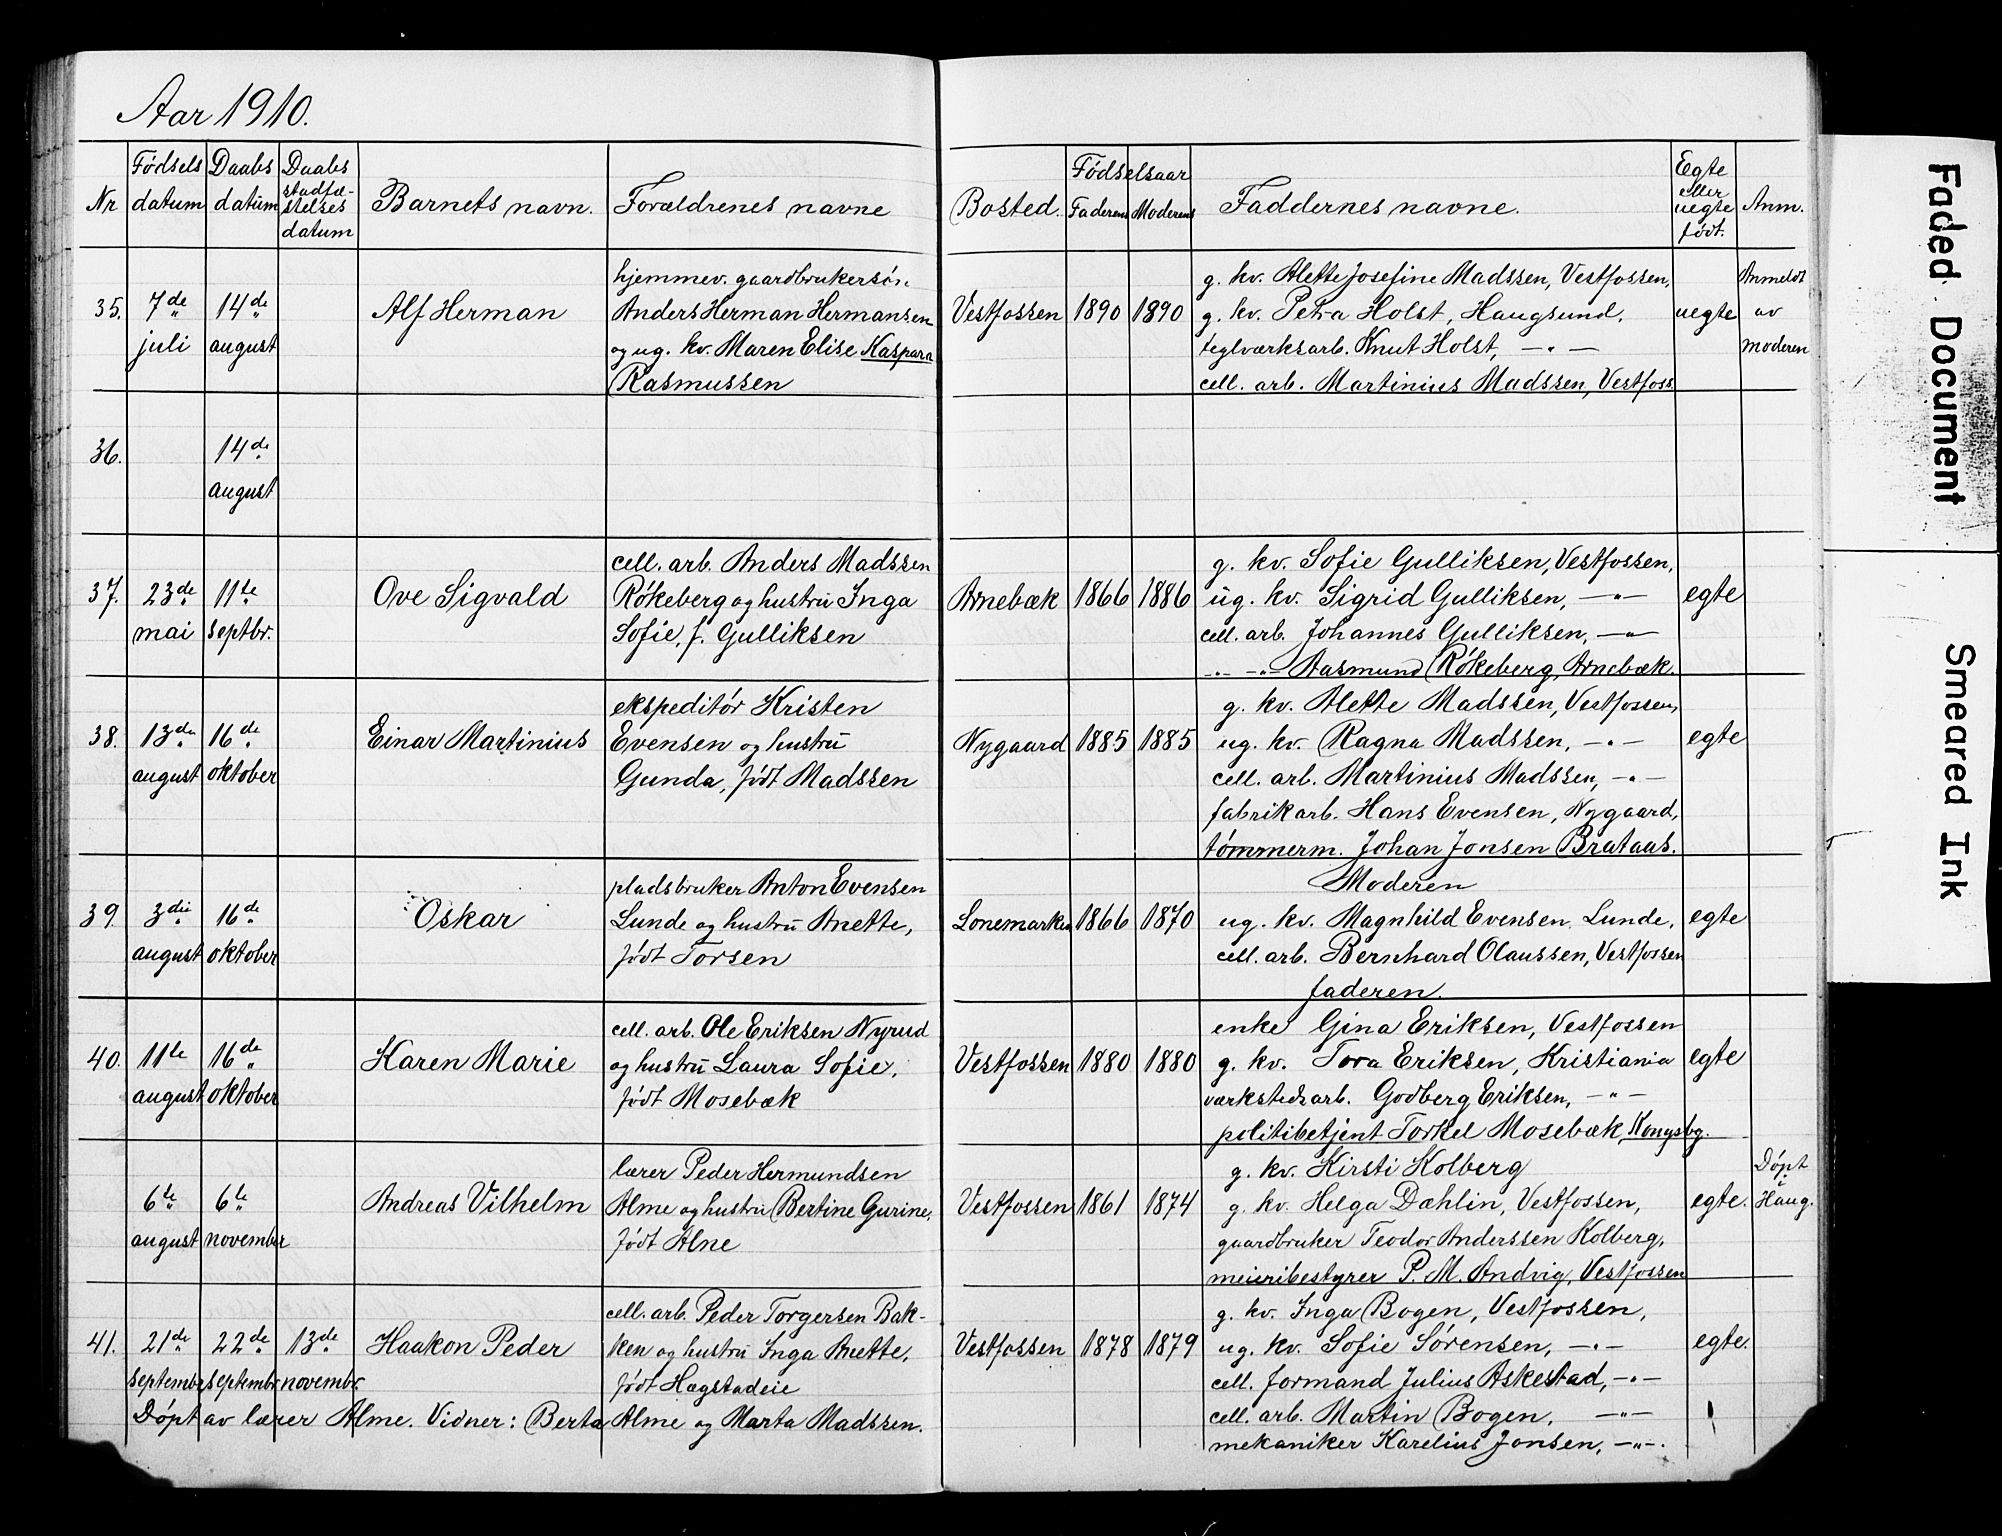 Aar 1910.
Nr
Fødsels datum
Daabs datum
Daabs stadfæ-stelses datum
Barnets navn.
Forældrenes navne
Bosted.
Fødselsaar
Faderens
Moderens
Faddernes navne.
Egte eller uegte født.
Anm.
35.
7de juli
14de august
Alf Herman
hjemmev. gaardbrukersøn
Anders Herman Hermansen
og ug. kv. Maren Elise Kaspara
Rasmussen
Vestfossen
1890
1890
g. kv. Alette Josefine Madssen, Vestfossen,
g. kv. Petra Holst, Haugsund,
teglværksarb. Knut Holst, — " —
cell. arb. Martinius Madssen, Vestfoss.
uegte
Anmeldt
av
moderen
36.
14de august
37.
23de mai
11te septbr.
Ove Sigvald
cell. arb. Anders Madssen
Røkeberg og hustru Inga
Sofie, f. Gulliksen
Arnebæk
1866
1886
g. kv. Sofie Gulliksen, Vestfossen,
ug. kv. Sigrid Gulliksen, — " —
cell. arb. Johannes Gulliksen, — "
- " - - " - Aasmund Røkeberg, Arnebæk.
egte
38.
13de august
16de oktober
Einar Martinius
ekspeditør Kristen
Evensen og hustru
Gunda, født Madssen
Nygaard
1885
1885
g. kv. Alette Madssen, Vestfossen,
ug. kv. Ragna Madssen, — " —
cell. arb. Martinius Madssen, — " —
fabrikarb. Hans Evensen, Nygaard,
tømmerm. Johan Jonsen Brataas.
egte
39.
3die august
16de oktober
Oskar
pladsbruker Anton Evensen
Lunde og hustru Anette,
født Torsen
Lonemarken
1866
1870
Moderen
ug. kv. Magnhild Evensen Lunde,
cell. arb. Bernhard Olaussen, Vestfossen
faderen.
egte
40.
11te august
16de oktober
Karen Marie
cell. arb. Ole Eriksen Nyrud
og hustru Laura Sofie,
født Mosebæk
Vestfossen
1880
1880
enke Gina Eriksen, Vestfossen
g. kv. Tora Eriksen, Kristiania
værkstedsarb. Godberg Eriksen, — " —
politibetjent Torkel Mosebæk, Kongsbg.
egte
6te august
6te november
Andreas Vilhelm
lærer Peder Hermundsen
Alme og hustru Bertine Gurine,
født Alne
Vestfossen
1861
1874
g. kv. Kirsti Kolberg
g. kv. Helga Dæhlin, Vestfossen,
gaardbruker Teodor Anderssen Kolberg,
meieribestyrer P. M. Andvig, Vestfossen
egte.
Døpt i
Haug.
41.
21de september
22de septembr.
13de novembr.
Haakon Peder
cell. arb. Peder Torgersen Bak-
ken og hustru Inga Anette,
født Hægstadeie
Vestfossen
1878
1879
g. kv. Inga Bogen, Vestfossen,
ug. kv. Sofie Sørensen, — " —
cell. formand Julius Askestad, — " —
cell. arb. Martin Bogen, — " —
mekaniker Karelius Jonsen, — " —.
egte.
Døpt av lærer Alme. Vidner: Berta Alme og Marta Madssen.
Faded Document
Smeared Ink